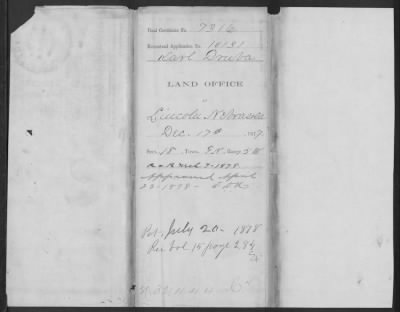 Final Certificate No. 7316
Homestead Application No. 10131
Karl
LAND OFFICE
Lincoln Nebraska
Dec. 17th 1877
Sect. 18, Town. 8 N, Range 5 W
Approved April
23-1878-
Pat. July 20- 1878
Rec Vol 15 page 284